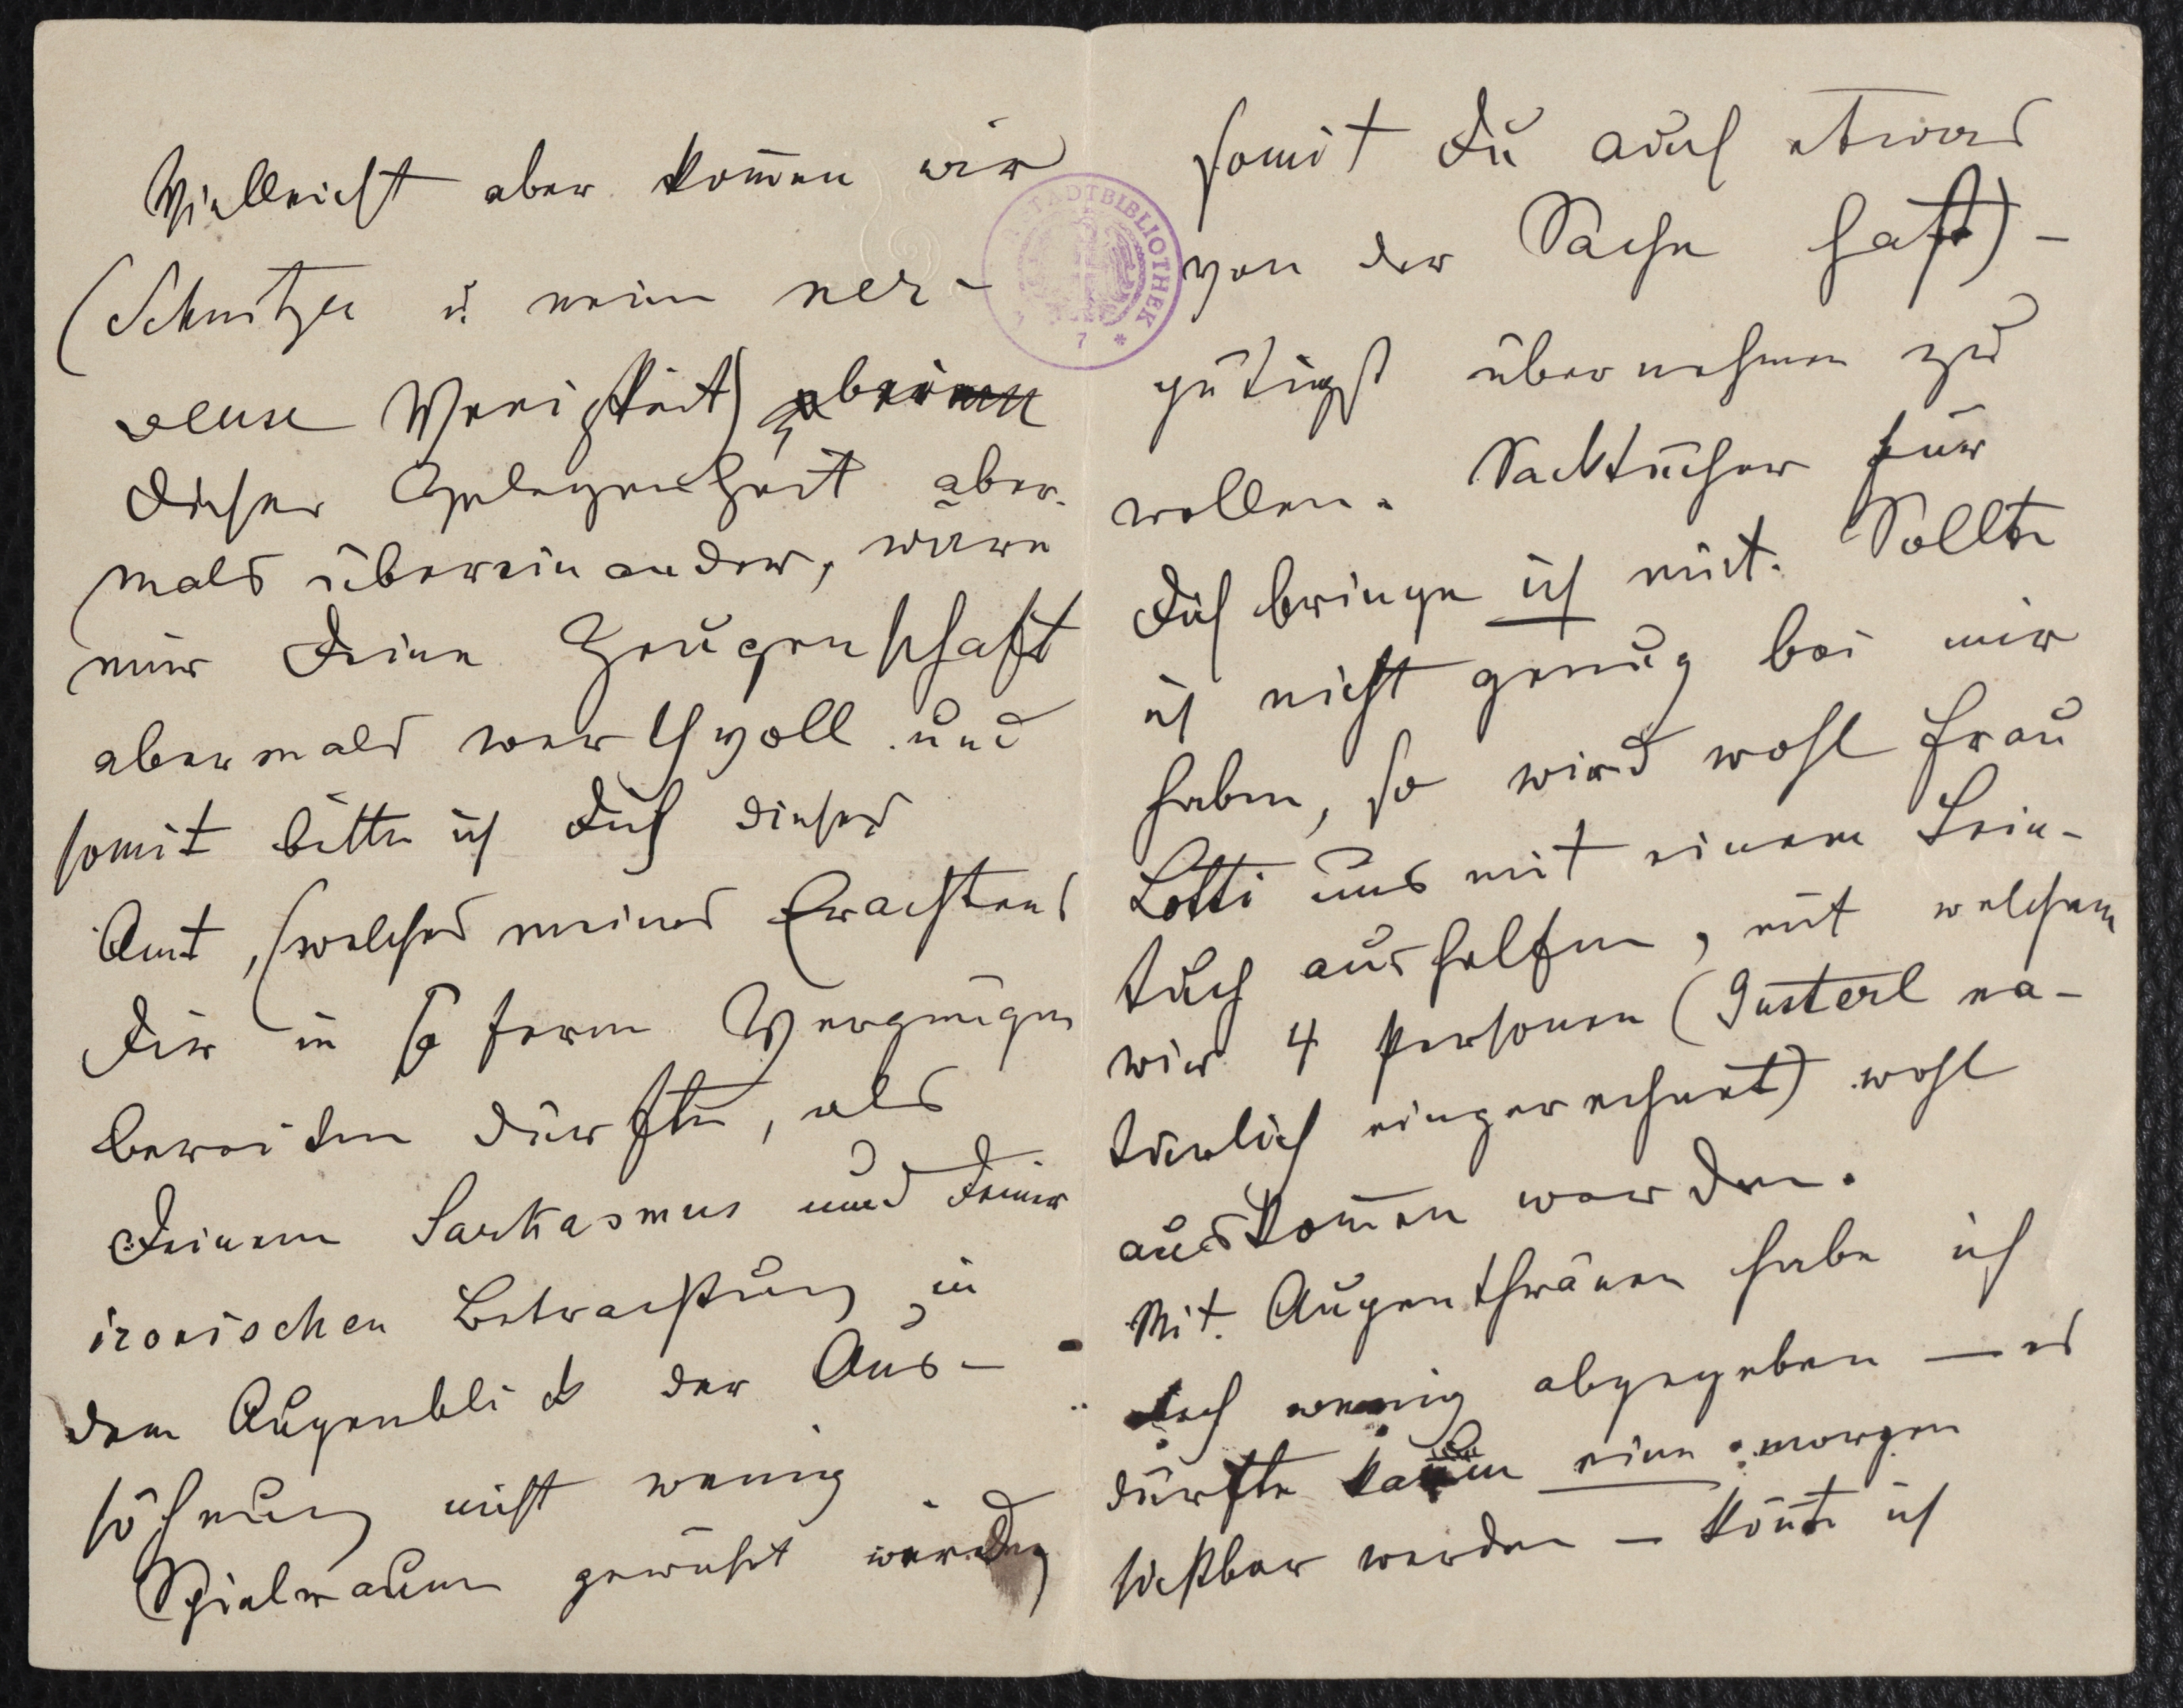 Vielleicht aber kom̄en wir
(Schnitzer u. meine ner-
vense Wenigkeit) bei
dieser Gelegenheit aber-
mals übereinander, wäre
mir Deine Zeugenschaft
abermals werthvoll und
somit bitte ich Dich dieses
Amt, (welches meines Erachtens
Dir in so fern Vergnügen
bereiten dürfte, als
Deinem Sarkasmus und Deiner
ironischen Betrachtung in
dem Augenblick der Aus-
söhnung nicht wenig
Spielraum gewährt würde,
somit Du auch etwas
von der Sache hast) -
gütigst übernehmen zu
wollen. Sacktücher für
Dich bringe ich mit. Sollte
ich nicht genug bei mir
haben, so wird wohl Frau
Lotti uns mit einem Lein-
tuch aushelfen, mit welchem
wir 4 Personen (Gusterl na-
türlich eingerechnet) wohl
auskom̄en werden.
Mit Augenthränen habe ich
mich wenig abgegeben — es
dürfte kaum eine morgen
sichtbar werden — kön̄te ich
STADTBIBLIOTHEK
7